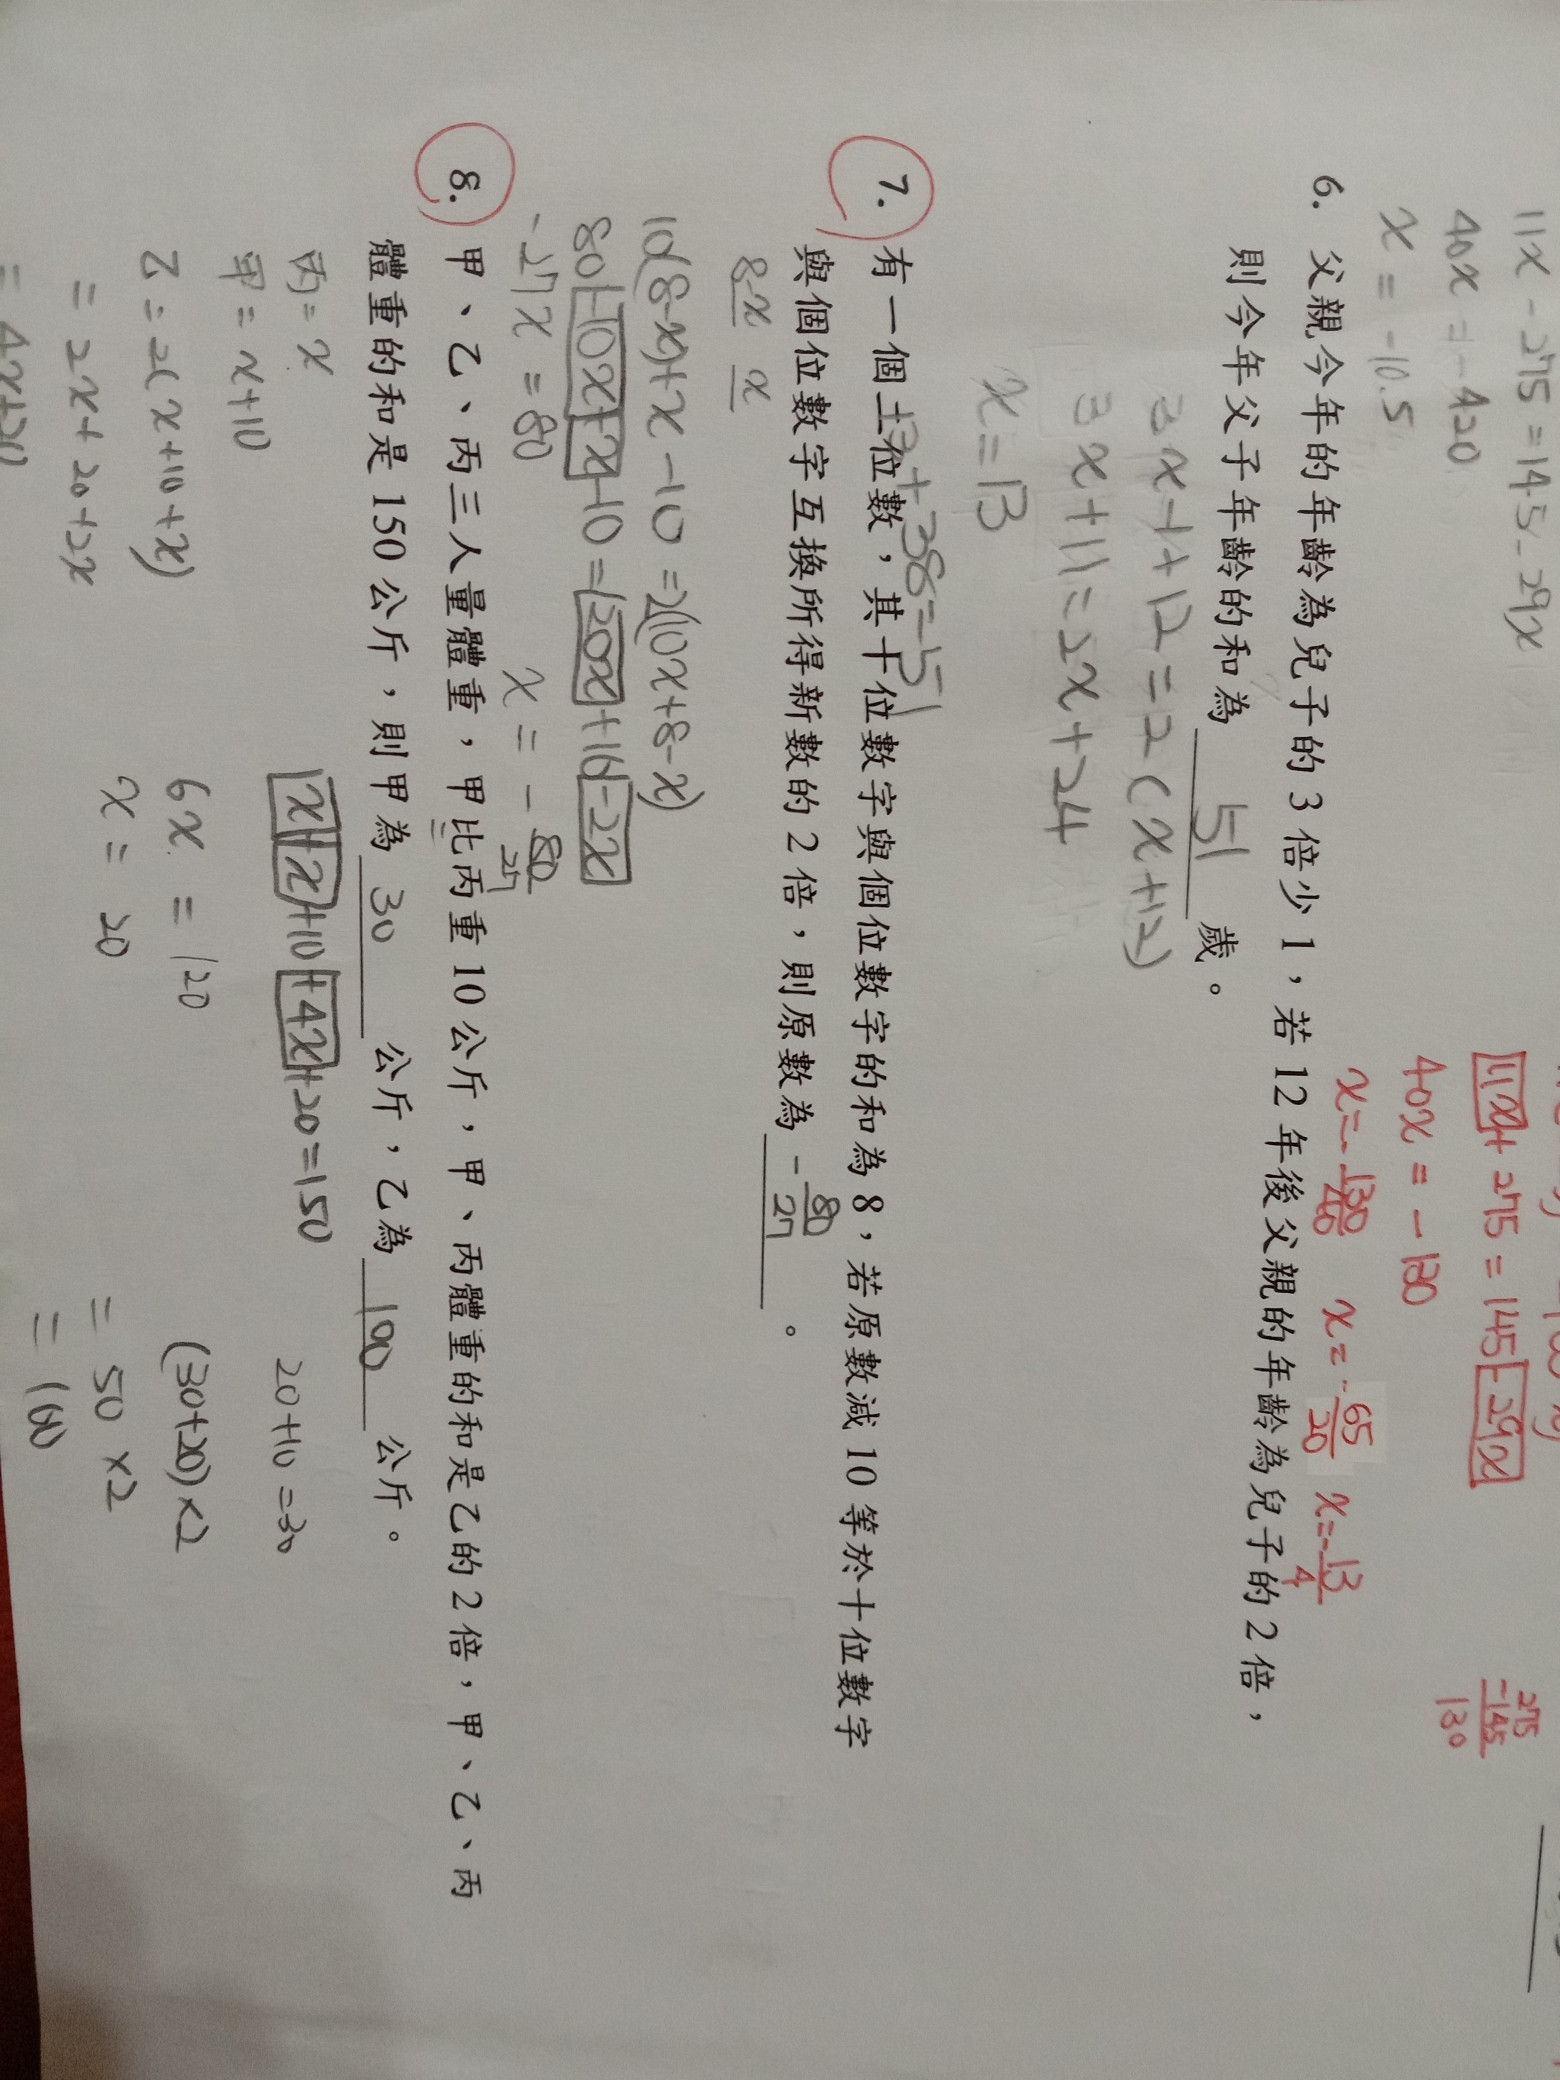 11x-275=145-29x
40x=-420
x=-10.5
11x+275=145-29x
40x=-130
x=-130/40 x=-65/20 x=-13/4
275
-145
130
6. 父親今年的年齡為兒子的3倍少1，若12年後父親的年齡為兒子的2倍，
則今年父子年齡的和為 51 歲。
3x-1+12=2(x+12)
3x+11=2x+24
x=13
13+38=51
7. 有一個二位數，其十位數字與個位數字的和為8，若原數減10等於十位數字
與個位數字互換所得新數的2倍，則原數為 -80/27 。
8-x x
10(8-x)+x-10=2(10x+8-x)
80-10x+x-10=20x+16-2x
-27x=80 x=-80/27
8. 甲、乙、丙三人量體重，甲比丙重10公斤，甲、丙體重的和是乙的2倍，甲、乙、丙
體重的和是150公斤，則甲為 30 公斤，乙為 100 公斤。
丙=x
甲=x+10
乙=2(x+10+x)
=2x+20+2x
=4x+20
x+x+10+4x+20=150
6x=120
x=20
20+10=30
(30+20)×2
=50×2
=100